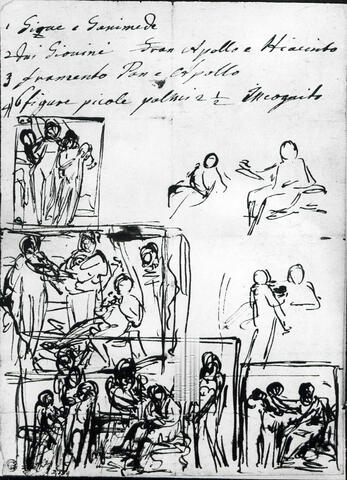 1 Giove e Ganimede
2 dui Giovini Apollo e Hiacinto
3 framento Pan e Apollo
4 6 figure picole palmi 2 ½ Incognito